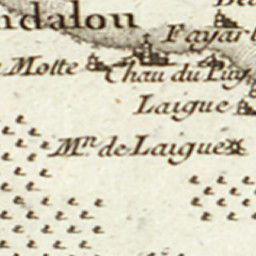 ndalou
Fayar
Motte
Chau du Puy
Laigue
Mn. de Laigue